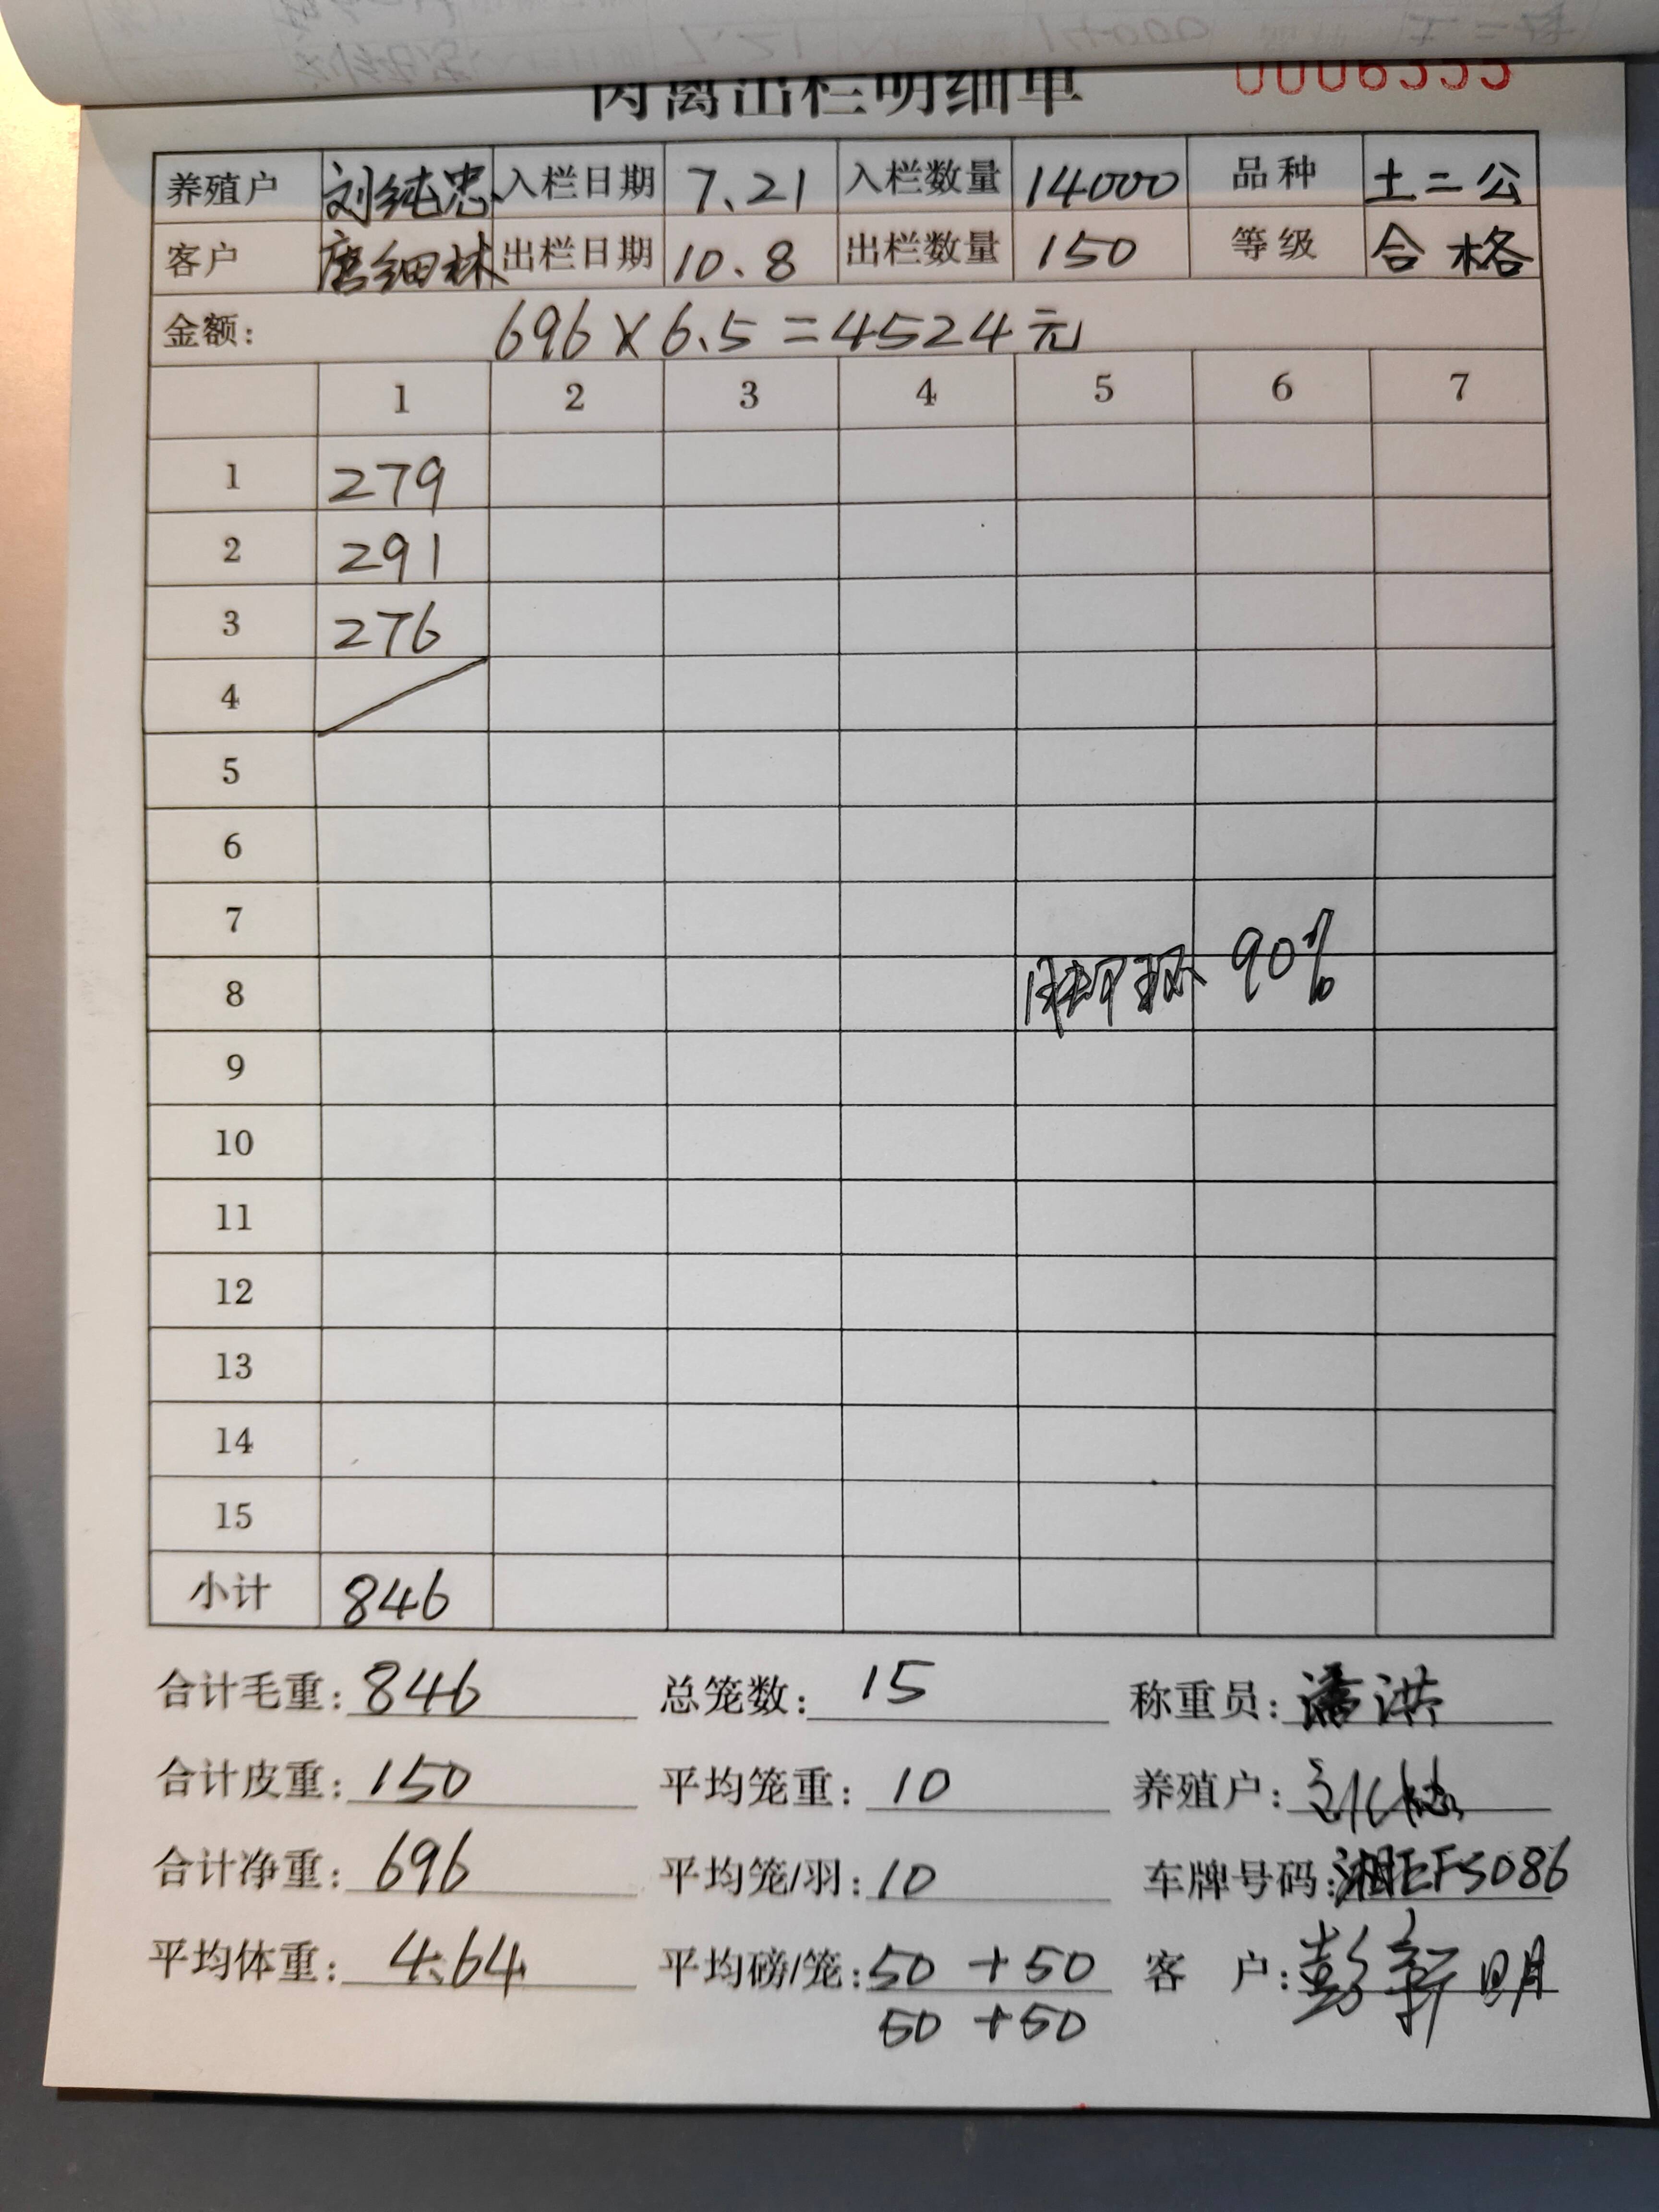 肉禽出栏明细单 0006355
养殖户 刘纯忠 入栏日期 7.21 入栏数量 14000 品种 土二公
客户 唐细林 出栏日期 10.8 出栏数量 150 等级 合格
金额: 696×6.5=4524元
1 2 3 4 5 6 7
1 279
2 291
3 276
4
5
6
7
8 90%
9
10
11
12
13
14
15
小计 846
合计毛重: 846 总笼数: 15 称重员: 潘洪
合计皮重: 150 平均笼重: 10 养殖户:
合计净重: 696 平均笼/羽: 10 车牌号码: 湘EF5086
平均体重: 4.64 平均磅/笼: 50+50 客 户: 彭新明
50+50